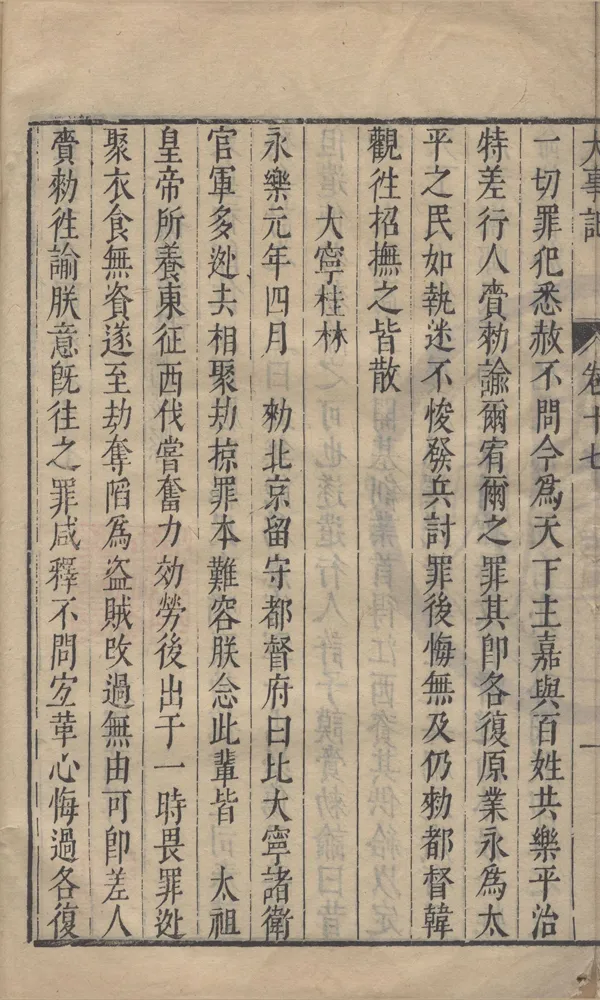 大事記 卷十七 一
一切罪犯悉赦不問今爲天下主嘉與百姓共樂平治
特差行人賫勑諭爾宥爾之罪其卽各復原業永爲太
平之民如執迷不悛發兵討罪後悔無及仍勑都督韓
觀徃招撫之皆散
大寧桂林
永樂元年四月 勑北京留守都督府曰比大寧諸衛
官軍多迯去相聚劫掠罪本難容朕念此輩皆 太祖
皇帝所養東征西伐嘗奮力効勞後出于一時畏罪迯
聚衣食無資遂至劫奪陷爲盗賊改過無由可卽差人
賫勑徃諭朕意旣往之罪咸釋不問宐革心悔過各復